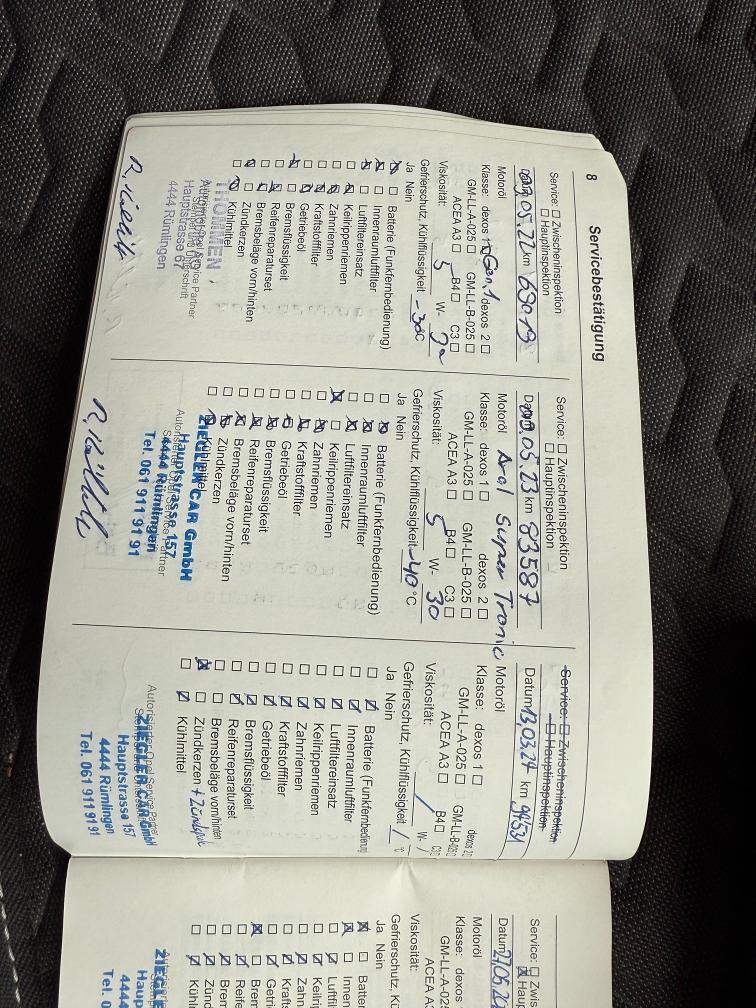 8
Servicebestätigung
Service: ☐ Zwischeninspektion
☐ Hauptinspektion
.05.22 km 63013
Motoröl
Klasse: dexos 1 ☒ Gen.1 dexos 2 ☐
GM-LL-A-025 ☐ GM-LL-B-025 ☐
ACEA A3 ☐ B4 ☐ C3 ☐
Viskosität: 5 W- 30
Gefrierschutz, Kühlflüssigkeit -38 °C
Ja Nein
Batterie (Funkfernbedienung)
Innenraumluftfilter
Luftfiltereinsatz
Keilrippenriemen
Zahnriemen
Kraftstofffilter
Getriebeöl
Bremsflüssigkeit
Reifenreparaturset
Bremsbeläge vorn/hinten
Zündkerzen
Kühlmittel
THOMMEN
Autorisierter Opel Service Partner
Hauptstrasse 67
4444 Rümlingen
Service: ☐ Zwischeninspektion
☐ Hauptinspektion
.05.23 km 83587
Motoröl Aral Super Tronic
Klasse: dexos 1 ☐ dexos 2 ☐
GM-LL-A-025 ☐ GM-LL-B-025 ☐
ACEA A3 ☐ B4 ☐ C3 ☐
Viskosität: 5 W- 30
Gefrierschutz, Kühlflüssigkeit -40 °C
Ja Nein
Batterie (Funkfernbedienung)
Innenraumluftfilter
Luftfiltereinsatz
Keilrippenriemen
Zahnriemen
Kraftstofffilter
Getriebeöl
Bremsflüssigkeit
Reifenreparaturset
Bremsbeläge vorn/hinten
Zündkerzen
Kühlmittel
ZIEGLER CAR GmbH
Hauptstrasse 157
4444 Rümlingen
Tel. 061 911 91 91
Service: ☐ Zwischeninspektion
☐ Hauptinspektion
Datum 13.03.24 km 94531
Motoröl
Klasse: dexos 1 ☐ dexos 2 ☐
GM-LL-A-025 ☐ GM-LL-B-025 ☐
ACEA A3 ☐ B4 ☐ C3 ☐
Viskosität: / W- /
Gefrierschutz, Kühlflüssigkeit / °C
Ja Nein
Batterie (Funkfernbedienung)
Innenraumluftfilter
Luftfiltereinsatz
Keilrippenriemen
Zahnriemen
Kraftstofffilter
Getriebeöl
Bremsflüssigkeit
Reifenreparaturset
Bremsbeläge vorn/hinten
Zündkerzen +
Kühlmittel
Autorisierter Opel Service Partner
ZIEGLER CAR GmbH
Hauptstrasse 157
4444 Rümlingen
Tel. 061 911 91 91
Service: ☐ Zwis
☒ Haup
Datum
Motoröl
Klasse: dexos
GM-LL-A
ACEA A
Viskosität:
Gefrierschutz, Kü
Ja Nein
Batte
Innen
Luftf
Keilri
Zahn
Kraft
Getri
Brem
Reife
Brem
Zünd
Kühl
ZIEGLE
Haup
4444
Tel. 0